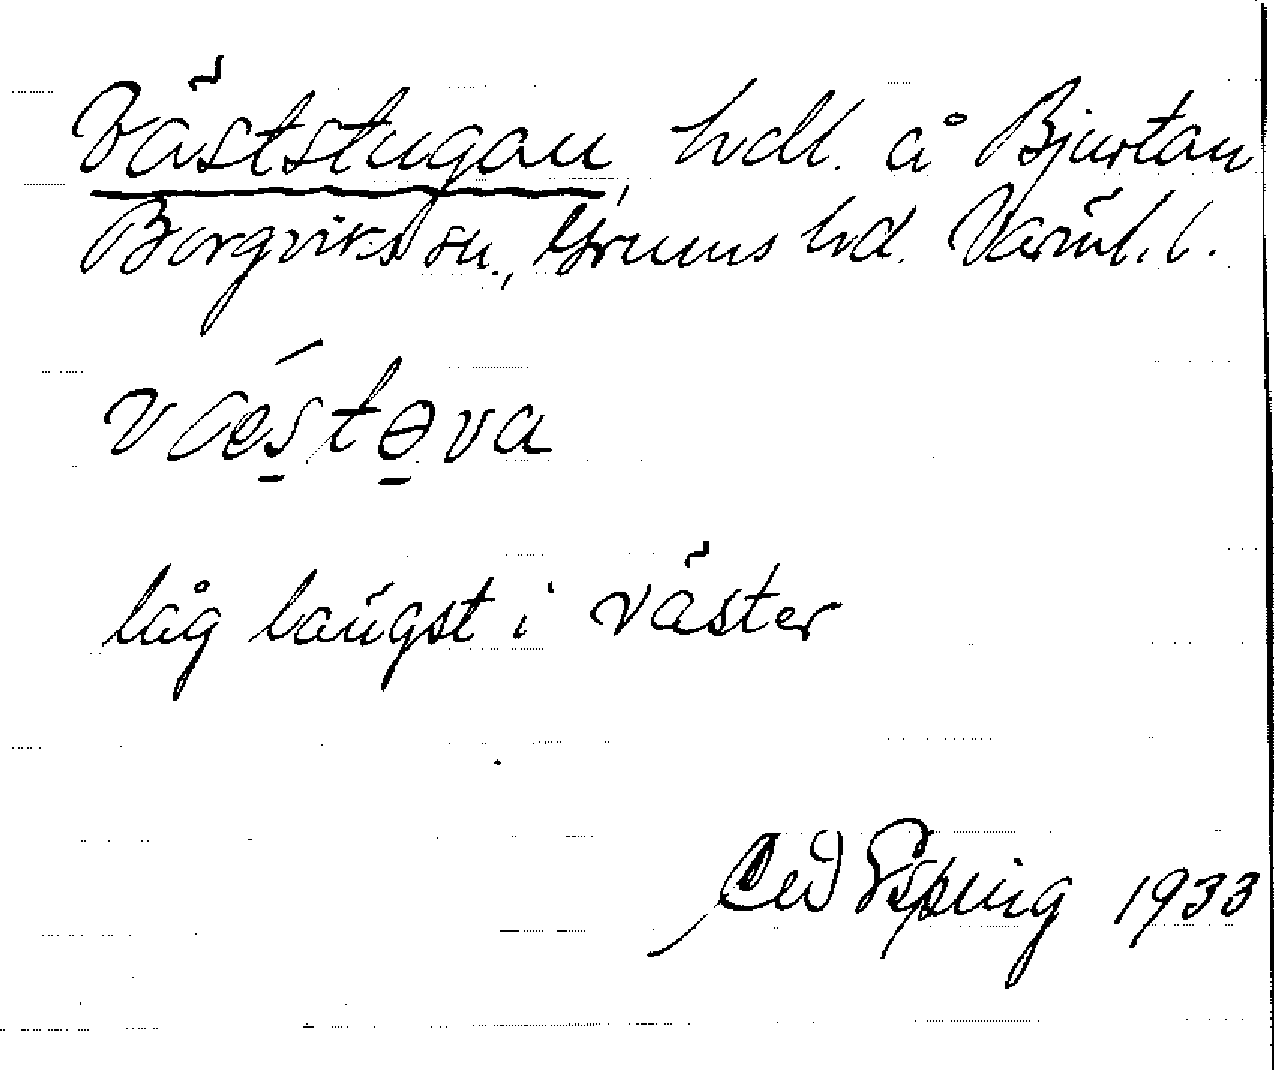 Väststugan, hdl. å Bjurtan
Borgviks sn., Grums hd. Värml. l.
væ´s̱tɵ̱va
låg längst i väster
Esping 1933